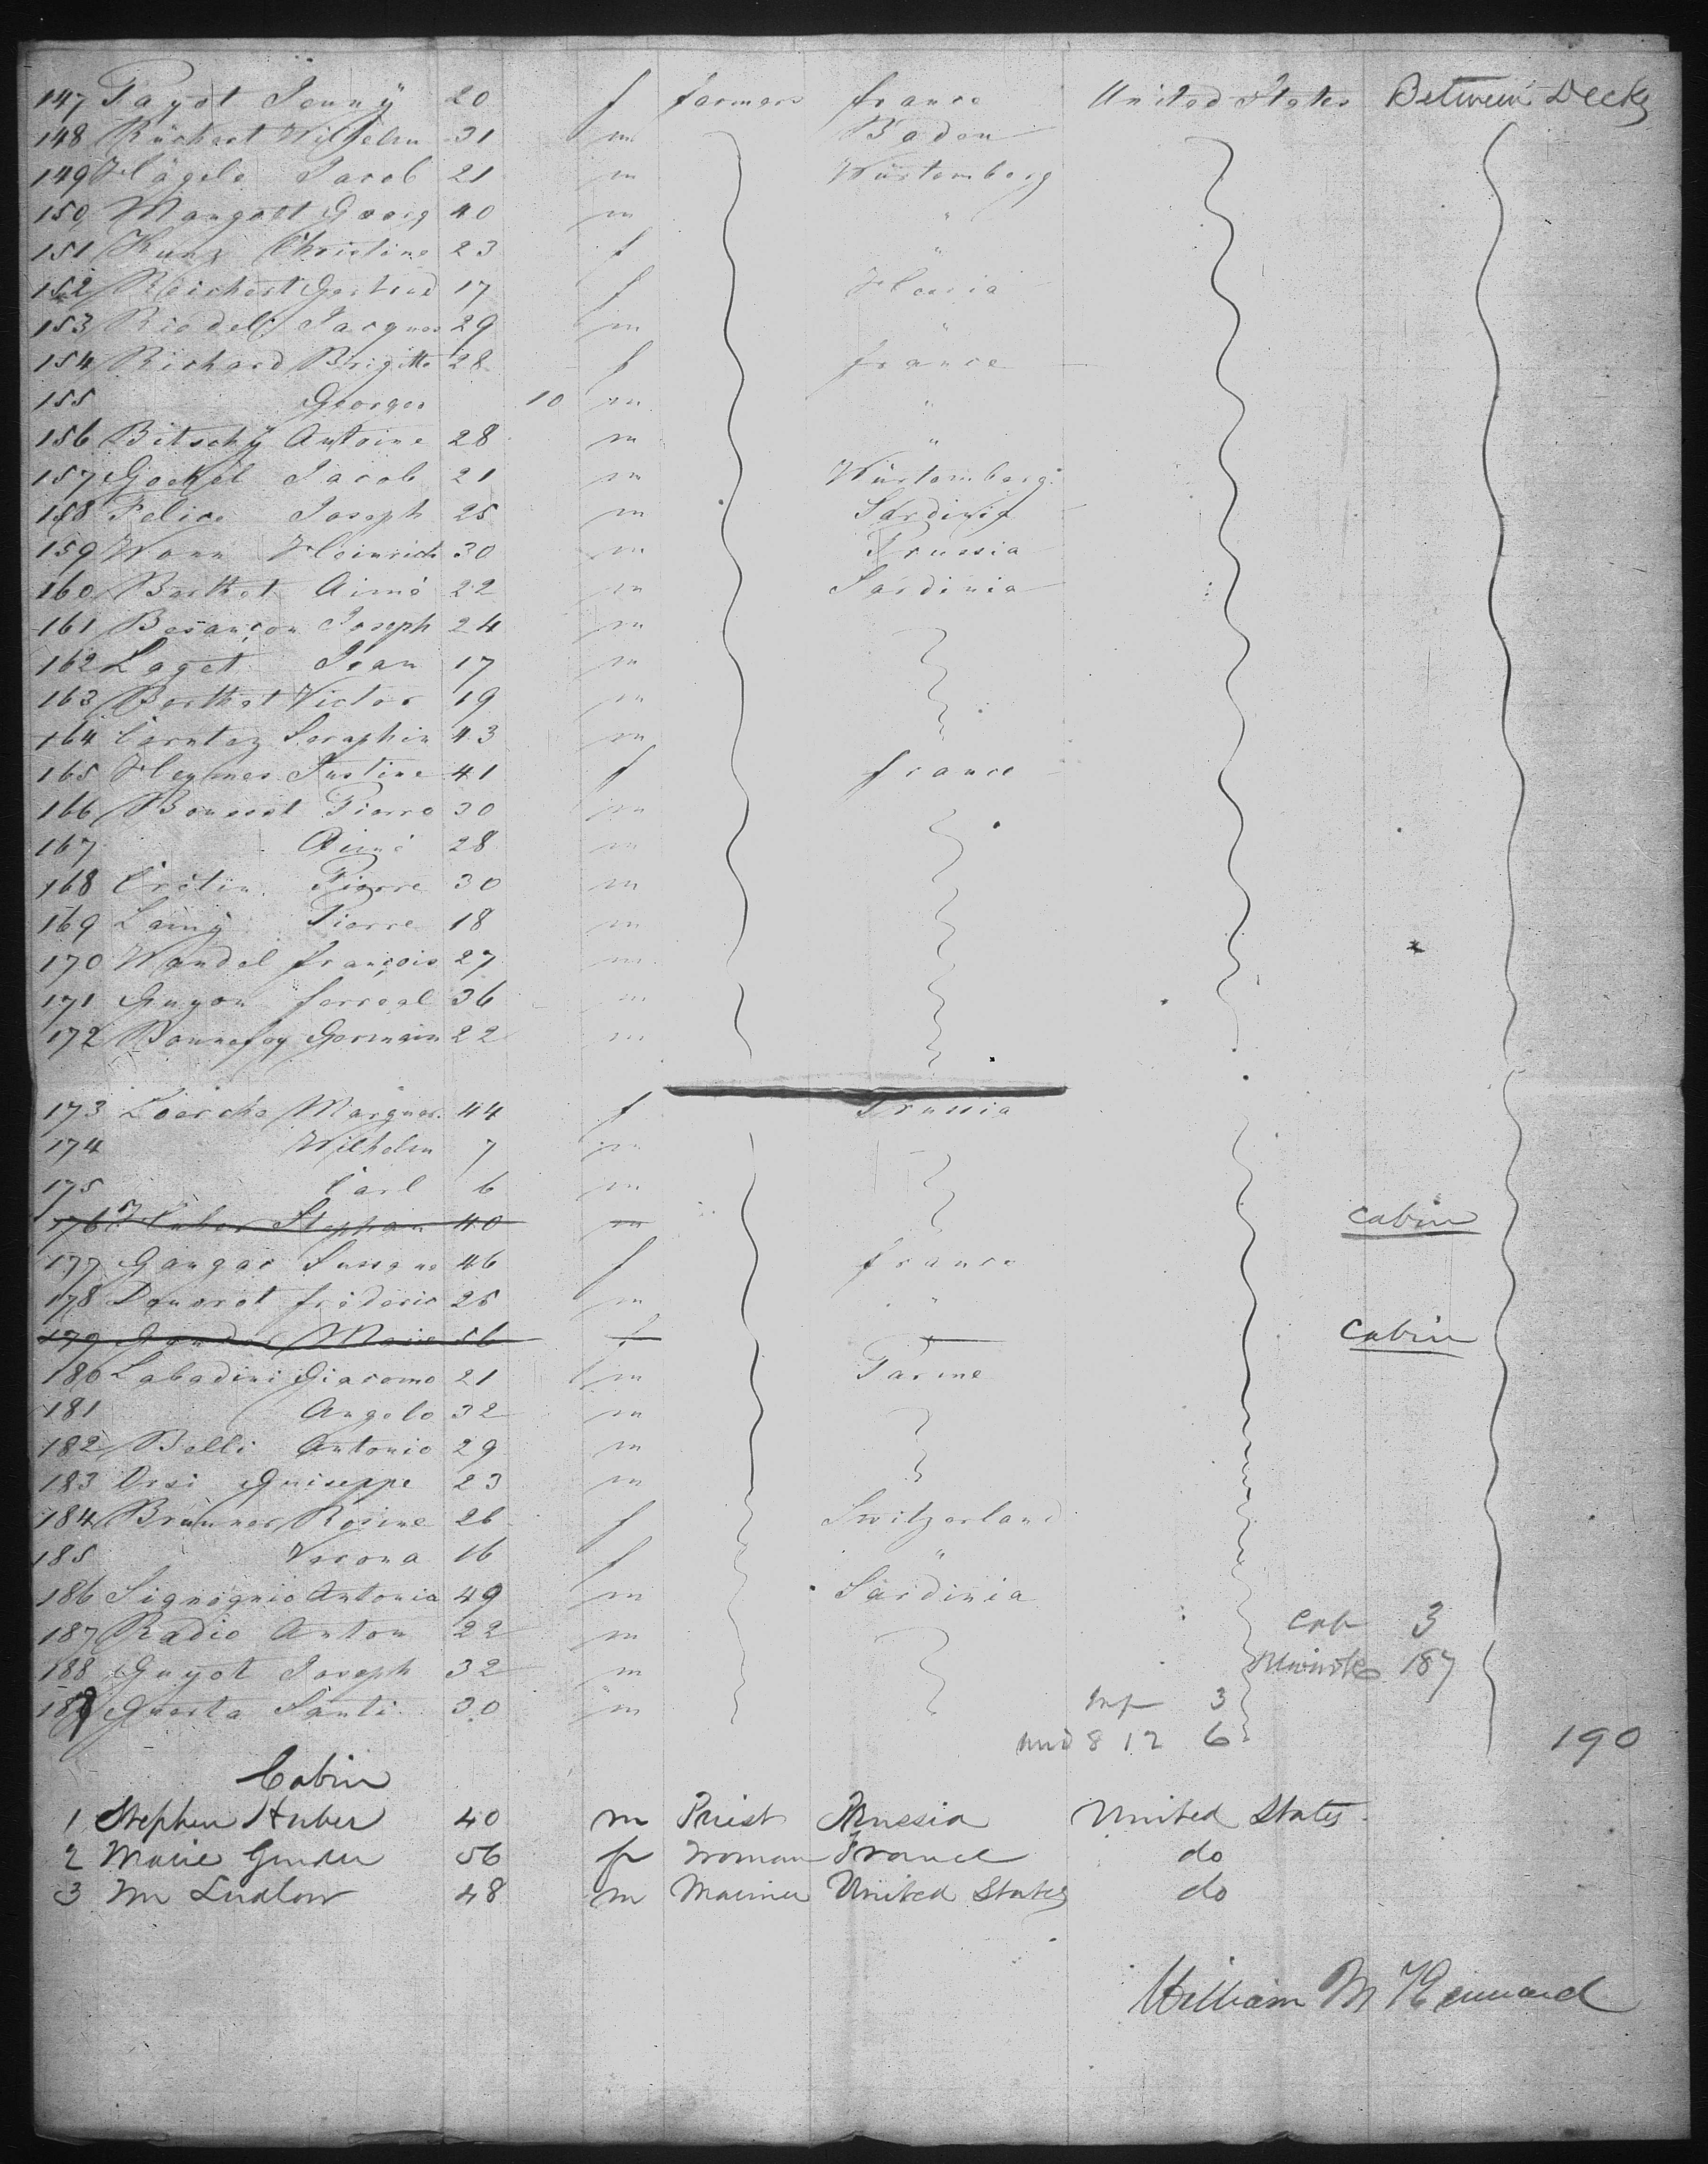 147 Payot Jenny 20 f farmers france United States Between Decks
148 Rückert Wilhelm 31 m Baden
149 Hägele Jacob 21 m Würtemberg
150 Mangott Georg 40 m "
151 Kunz Christine 23 f "
152 Reichert Gertrud 17 f Hessia
153 Riedel Jacques 29 m "
154 Richard Brigitte 28 f france
155 Georges 10 m "
156 Bitschÿ Antoine 28 m "
157 Goekel Jacob 21 m Würtemberg
158 Felice Joseph 25 m Sardinia
159 Wann Heinrich 30 m Prussia
160 Berthet Aimé 22 m Sardinia
161 Besançon Joseph 24 m
162 Laget Jean 17 m
163 Berthet Victor 19 m
164 Seraphin 43 m
165 Heymes Justine 41 f france
166 Pierre 30 m
167 Aimé 28 m
168 Cretin Pierre 30 m
169 Lamÿ Pierre 18 m
170 Wandel françois 27 m
171 Guyon ferreal 36 m
172 Bonnefoy Germain 22 m
173 Loercke Marguer. 44 f Prussia
174 Wilhelm 7 m
175 Carl 6 m
176 Huber Stephan 40 m cabin
177 Gangar Susane 46 f france
178 frederic 25 m "
179 Gander Marie 56 f cabin
180 Labadini Giacomo 21 m Parme
181 Angelo 32 m
182 Belli Antonio 29 m
183 Orsi Guiseppe 23 m
184 Brunner Rosine 26 f Switzerland
185 Verona 16 f "
186 Antonia 49 m Sardinia
187 Radio Anton 22 m
188 Guyot Joseph 32 m
189 Guerta Santi 30 m
cab 3
187
Inf 3
und 8 12 6
190
Cabin
1 Stephen Huber 40 m Priest Prussia United States
2 Marie Gander 56 f Woman France do
3 Wm Ludlow 48 m Mariner United States do
William M Kennard